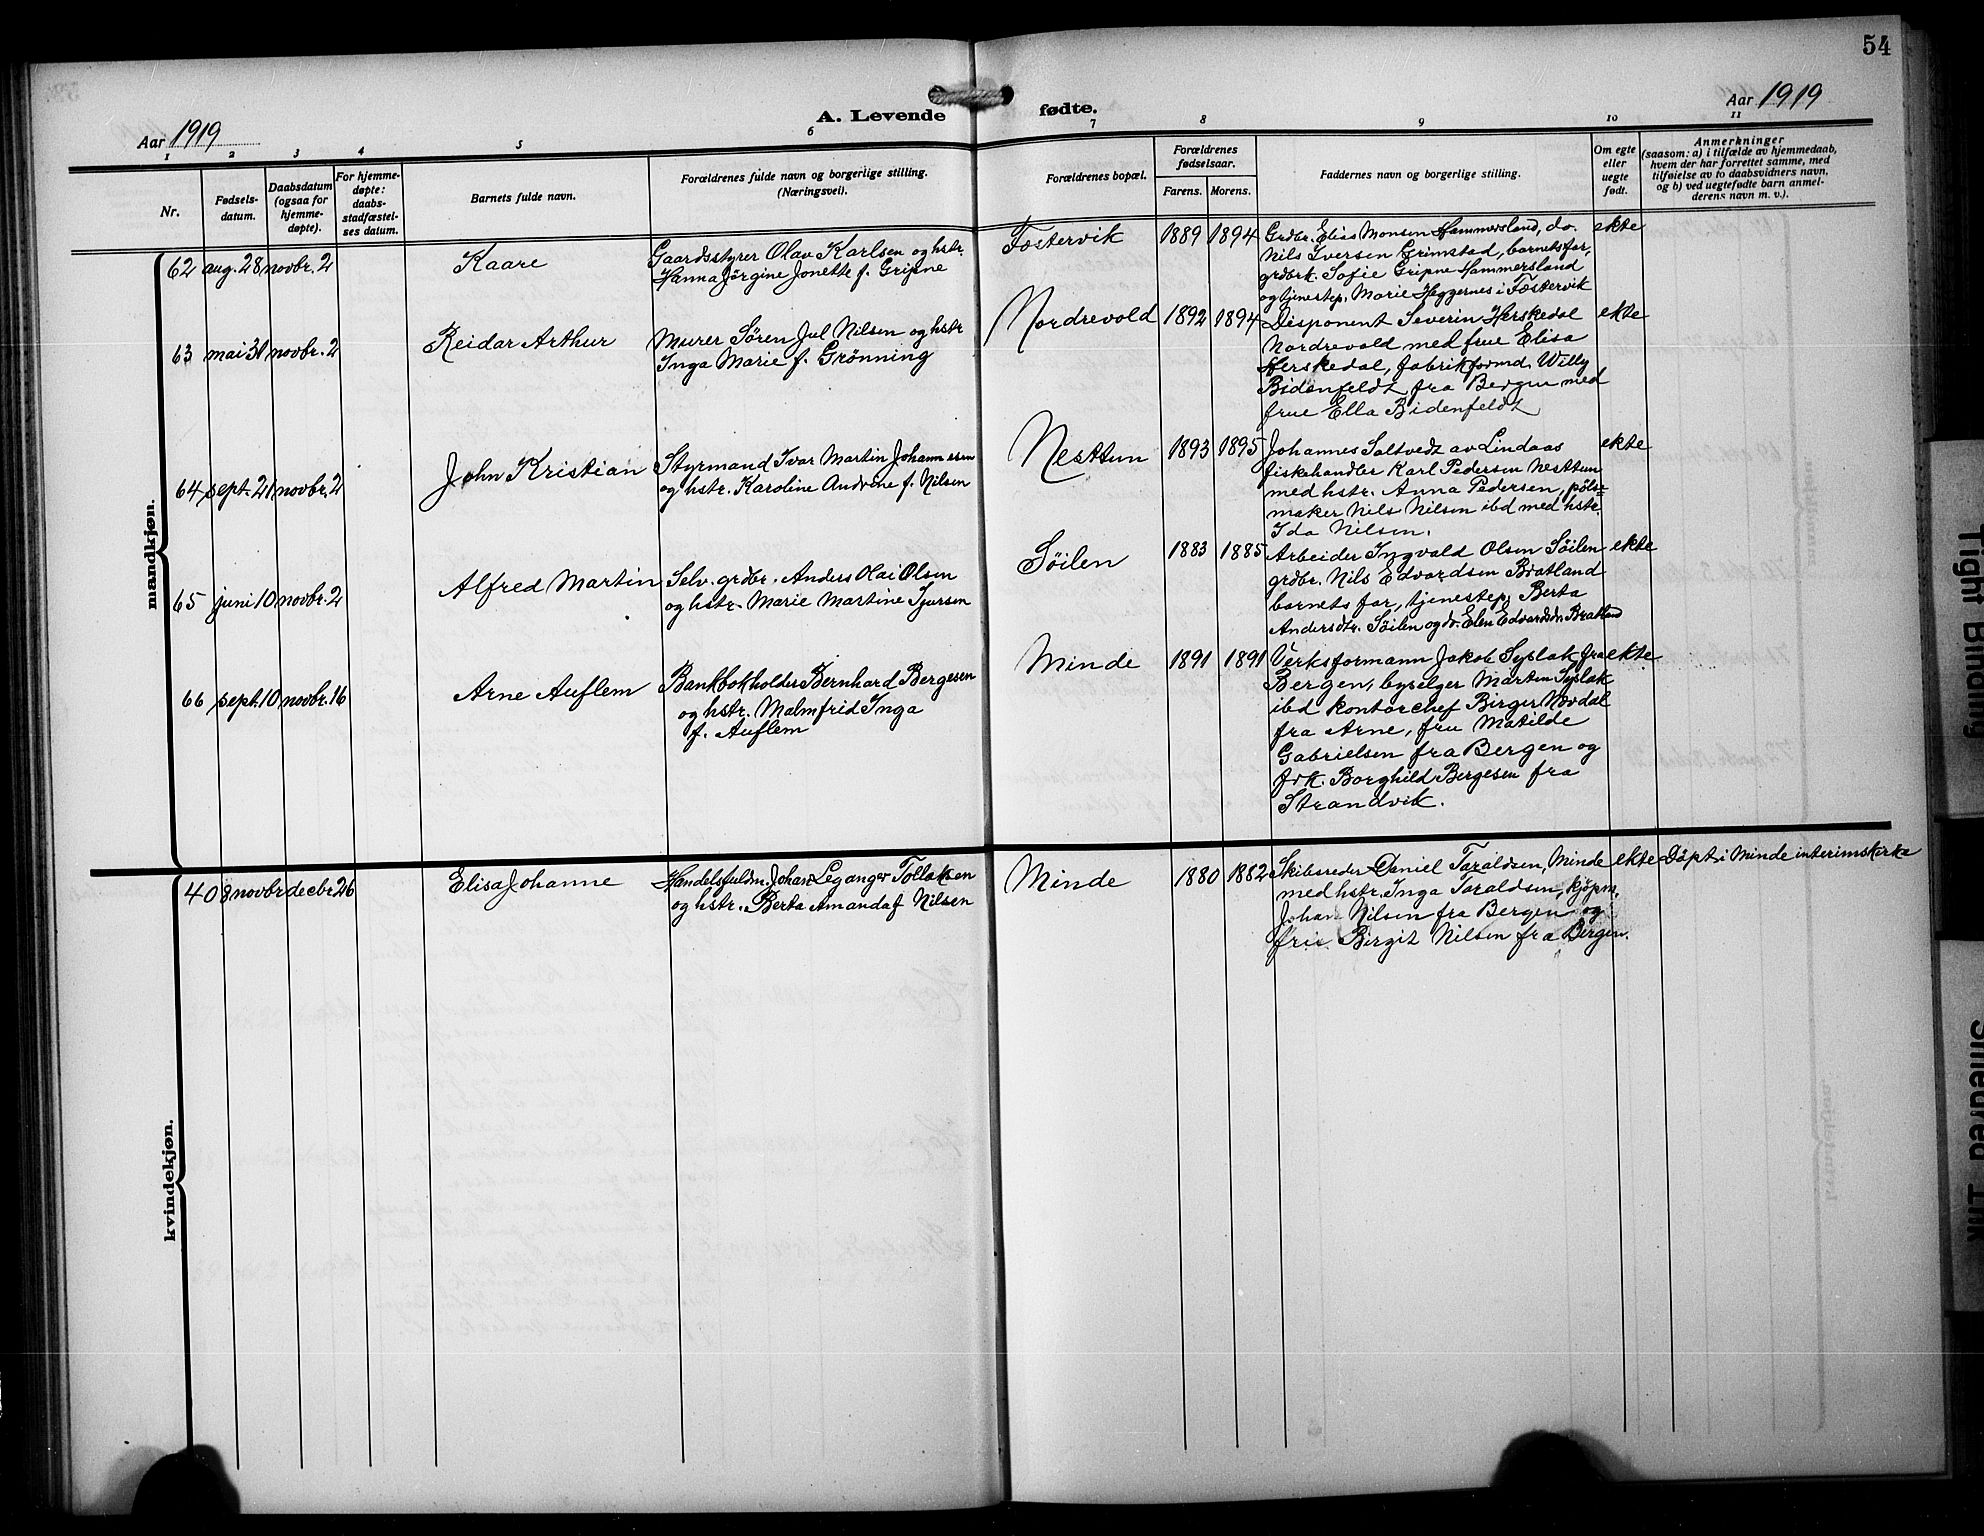 54
A. Levende fødte.
Aar 1919
Aar 1919
1 2 3 4 5 6 7 8 9 10 11
Nr.
Fødsels-
datum.
Daabsdatum
(ogsaa for
hjemme-
døpte).
For hjemme-
døpte:
daabs-
stadfæstel-
ses datum.
Barnets fulde navn.
Forældrenes fulde navn og borgerlige stilling.
(Næringsvei).
Forældrenes bopæl.
Forældrenes
fødselsaar.
Farens. Morens.
Faddernes navn og borgerlige stilling.
Om egte
eller
uegte
født.
Anmerkninger
(saasom: a) i tilfælde av hjemmedaab,
hvem der har forrettet samme, med
tilføielse av to daabsvidners navn,
og b) ved uegtefødte barn anmel-
derens navn m. v.).
mandkjøn.
62 aug. 28 novbr. 2 Kaare
Gaardsstyrer Olav Karlsen og hstr.
Hanna Jörgine Jonette f. Gripne
Fæstervik 1889 1894
Grdbr. Elias Monsen Hammersland, do.
Nils Iversen Grimstad, barnets far,
grdbrk. Sofie Gripne Hammersland
og tjenestep. Marie Heggernes i Fæstervik
ekte
63 mai 31 novbr. 2 Reidar Arthur
Murer Sören Jul Nilsen og hstr
Inga Marie f. Grönning
Nordrevold 1892 1894
Disponent Severin Herskedal
Nordrevold med frue Elisa
Herskedal, fabrikformd. Willy
Bidenfeldt fra Bergen med
frue Ella Bidenfeldt
ekte
64 sept. 21 novbr. 2 John Kristian
Styrmand Ivar Martin Johannesen
og hstr. Karoline Andrine f. Nilsen
Nesttun 1893 1895
Johannes Saltvedt av Lindaas
fiskehandler Karl Pedersen Nesttun
med hstr. Anna Pedersen, pöls=
maker Nils Nilsen ibd med hstr.
Ida Nilsen.
ekte
65 juni 10 novbr. 2 Alfred Martin
Selv. grdbr. Anders Olai Olsen
og hstr. Marie Martine Sjursen
Söilen 1883 1885
Arbeider Ingvald Olsen Söilen
grdbr. Nils Edvardsen Bratland
barnets far, tjenestep. Berta
Andersdtr. Söilen og do. Elen Edvardsdtr. Bratland
ekte
66 sept. 10 novbr. 16 Arne Auflem
Bankbokholder Bernhard Bergesen
og hstr. Malmfrid Inga
f. Auflem
Minde 1891 1891
Verksformann Jakob Syslak fra
Bergen, byselger Marten Syslak
ibd kontorchef Birger Nordal
fra Arne, fru Matilde
Gabrielsen fra Bergen og
frk. Borghild Bergesen fra
Strandvik.
ekte
kvindekjøn.
40 8 novbr decbr. 26 Elisa Johanne
Handelsfuldm. Johan Leganger Tollaksen
og hstr. Berta Amanda f Nilsen
Minde 1880 1882
Skibsreder Daniel Taraldsen, Minde
med hstr. Inga Taraldsen, kjöpm.
Johan Nilsen fra Bergen og
frü Birgit Nilsen fra Bergen.
ekte
Döpt i Minde interimskirke
Tight Binding
Smeared Ink